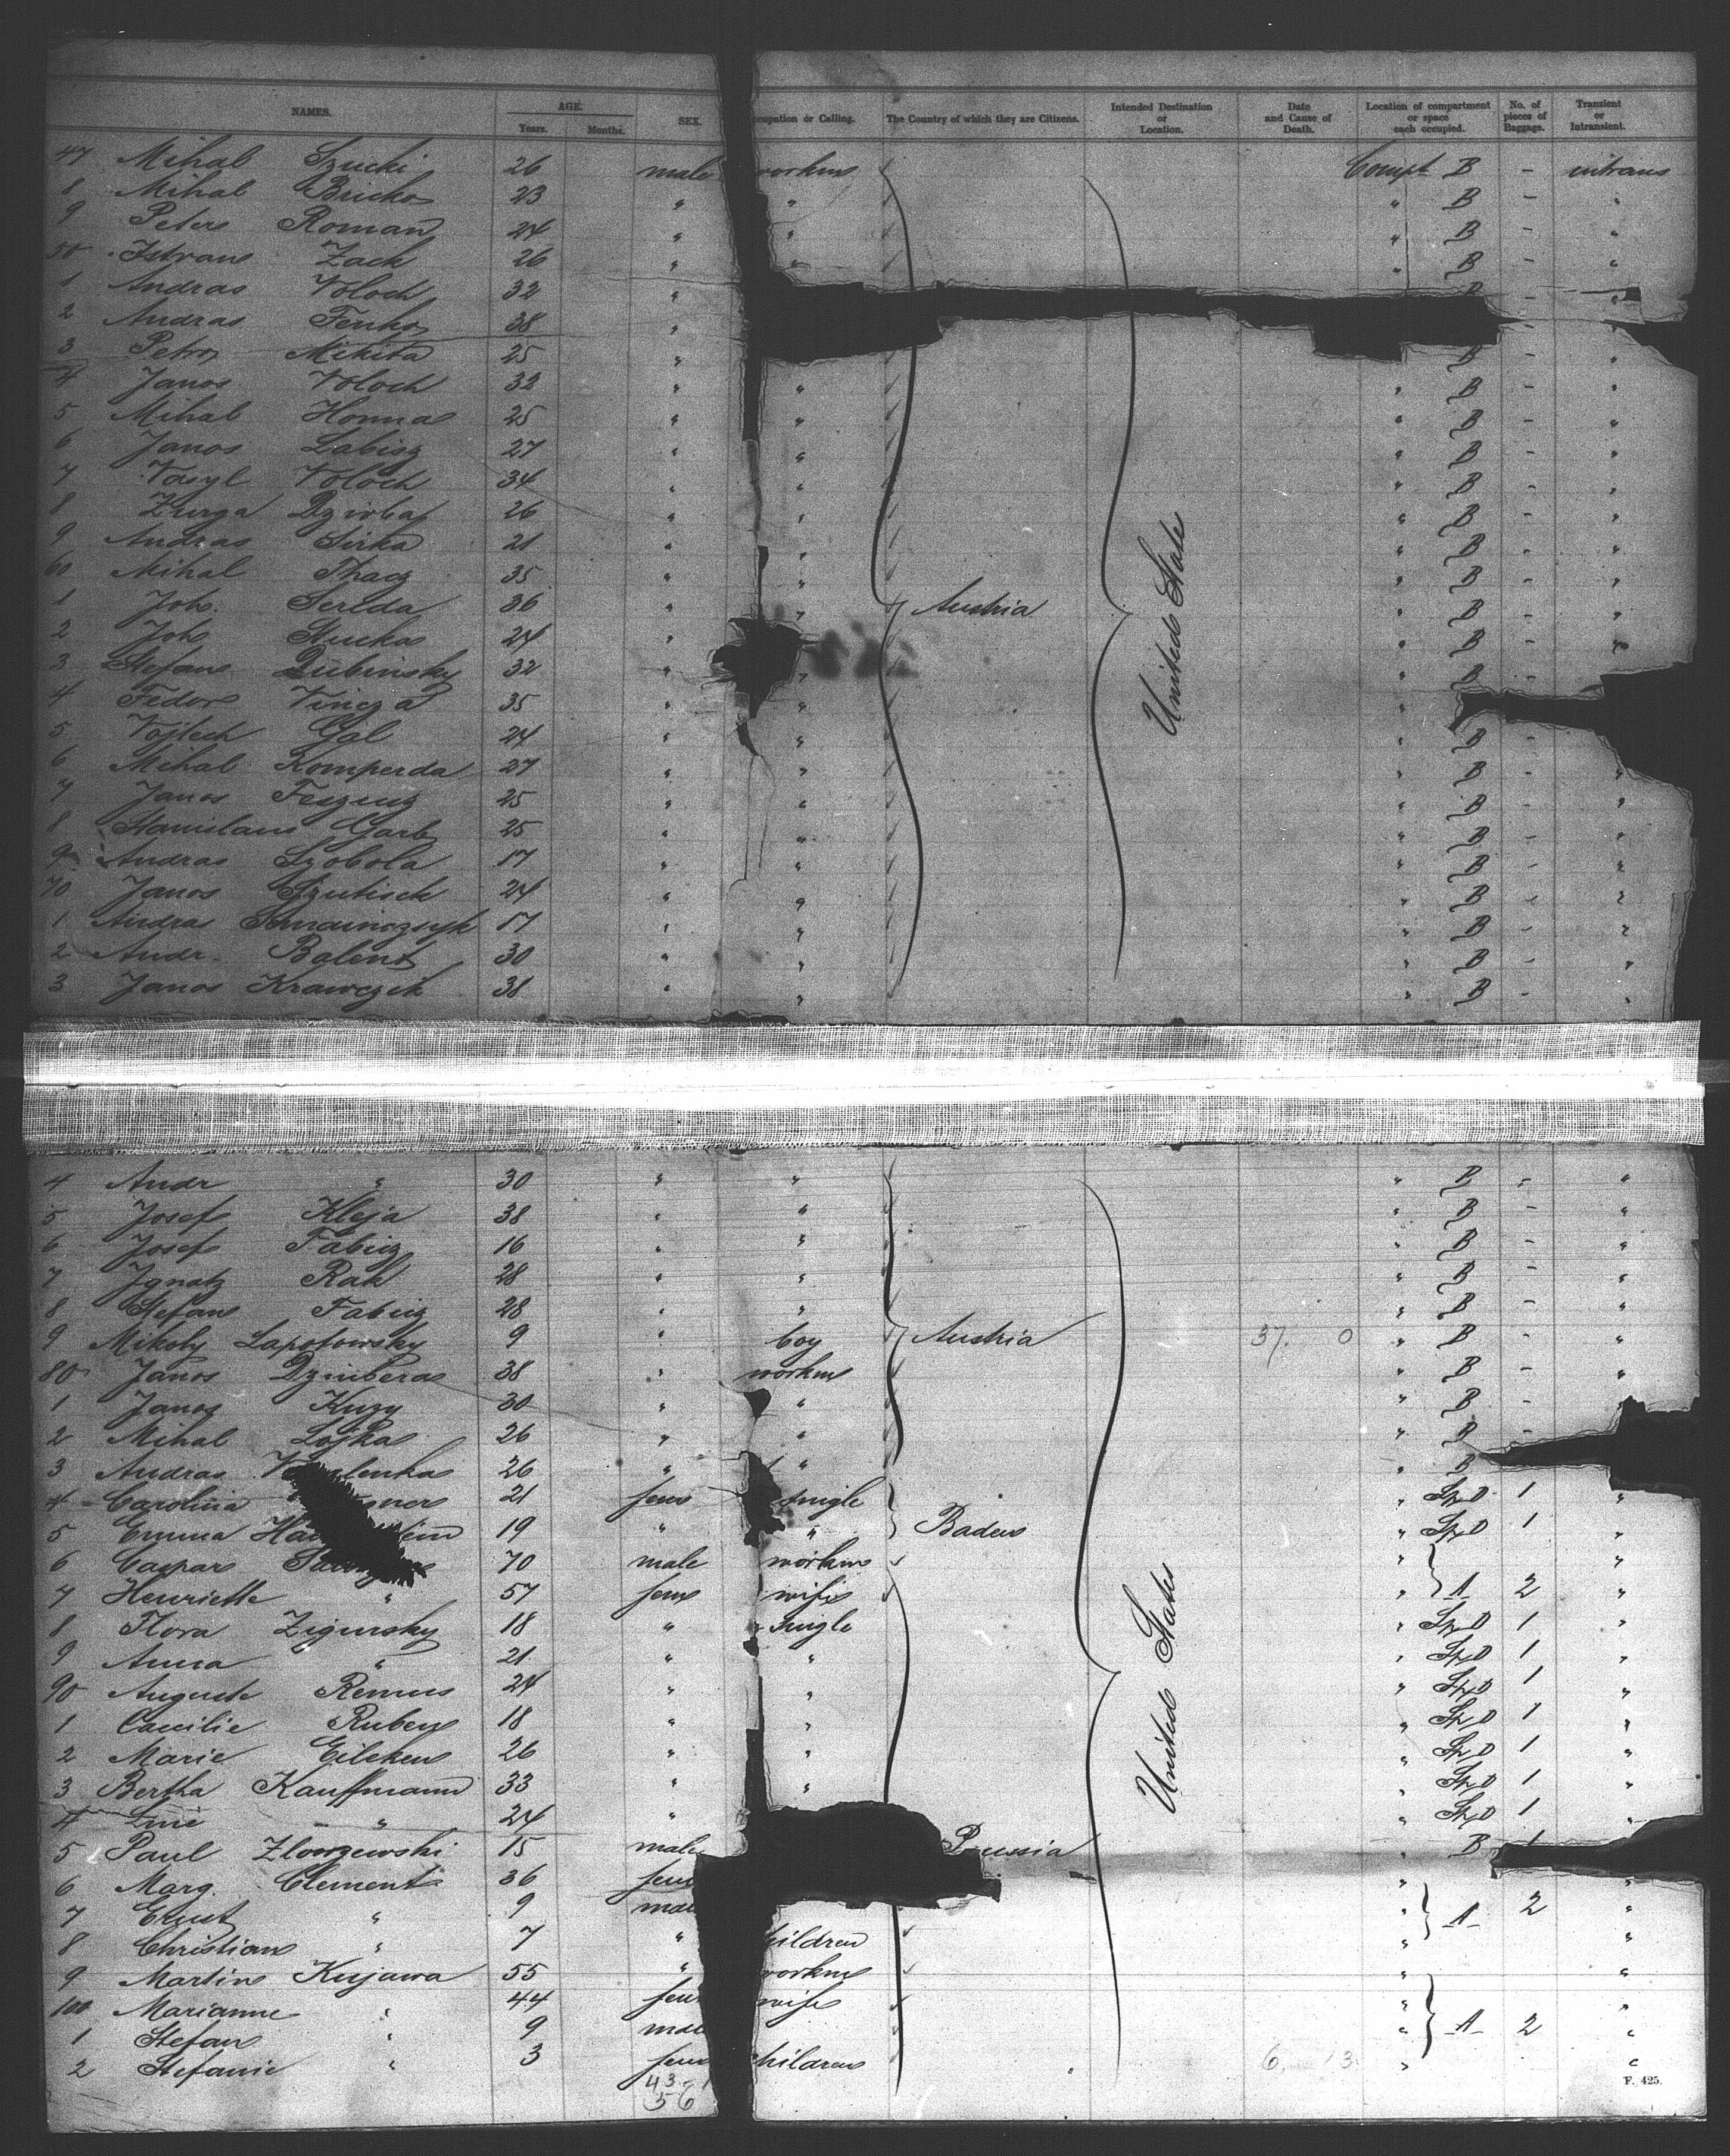 NAMES. AGE. Years. Months. SEX. cupation or Calling. The Country of which they are Citizens. Intended Destination or Location. Date and Cause of Death. Location of compartment or space each occupied. No. of pieces of Baggage. Transient or Intransient.
47 Mihal Szucki 26 male workm Compt B - intrans
8 Mihal Bricko 23 " " " B - "
9 Peter Roman 24 " " " B - "
50 Istvan Zack 26 " " " B - "
1 Andras Voloch 32 " - "
2 Andras Fenko 38 " - "
3 Petro Mikita 25 " B - "
4 Janos Voloch 32 " " " B - "
5 Mihal Honna 25 " " " B - "
6 Janos Labisz 27 " " " B - "
7 Vasyl Voloch 34 " " " B - "
8 Zurga Dzioba 26 " " " B - "
9 Andras Sirka 21 " " " B - "
60 Mihal Thacz 35 " " " B - "
1 Joh. Serlda 36 " " Austria United State " B - "
2 Joh Stucka 24 " " B - "
3 Stefan Dubinsky 32 " " " B - "
4 Fedor Vincza 35 " " "
5 Vojtech Gal 24 " " " B -
6 Mihal Komperda 27 " " " B - "
7 Janos 25 " " " B - "
8 Stanislaus Garb 25 " " " B - "
9 Andras Szobola 17 " " " B - "
70 Janos Szutisck 24 " " " B - "
1 Andras 17 " " " B - "
2 Andr. Balent 30 " " " B - "
3 Janos Krawczik 38 " " " B - "
4 Andr " 30 " " " B - "
5 Josef Kleja 38 " " " B - "
6 Josef Fabicz 16 " " " B - "
7 Ignatz Rak 28 " " " B - "
8 Stefan Fabicz 28 " " " B - "
9 Mikoly Lapotowsky 9 " boy Austria 37. 0 " B - "
80 Janos Dzinbera 38 " workm " B - "
1 Janos Kuzy 30 " " " B - "
2 Mihal Lojka 26 " " " B -
3 Andras 26 " " B
4 Carolina 21 fem single " Sp D 1 "
5 Emma 19 " " Baden " Sp D 1 "
6 Caspar 70 male workm " "
7 Henriette " 57 fem wife United States " A 2 "
8 Flora Ziginsky 18 " single " Sp D 1 "
9 Anna " 21 " " " Sp D 1 "
90 Auguste Remus 24 " " " Sp D 1 "
1 Caecilie Ruben 18 " " " Sp D 1 "
2 Marie Eilcken 26 " " " Sp D 1 "
3 Bertha Kauffmann 33 " " " Sp D 1 "
4 Line " 24 " " Sp D 1 "
5 Paul Zlowzewski 15 male Prussia " B 1
6 Marg. Clement 36 fem " "
7 Ernst " 9 male " A 2 "
8 Christian " 7 " hildren " "
9 Martin Kujawa 55 " workm " "
100 Marianne " 44 fem wife " "
1 Stefan " 9 male " A 2 "
2 Stefanie " 3 fem hildren 6. 13. " "
43-1
56
F. 425.